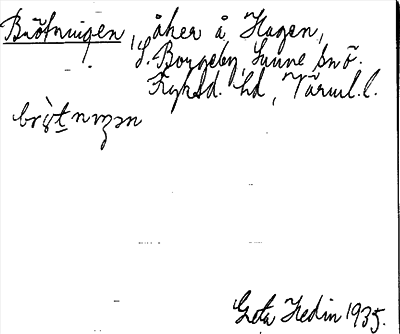 Brötningen, åker å Hagen,
S. Borgeby, Sunne sn ö.
Fryksd. hd, Värml. l.
brø̀t̠nıŋən
Greta Hedin 1935.